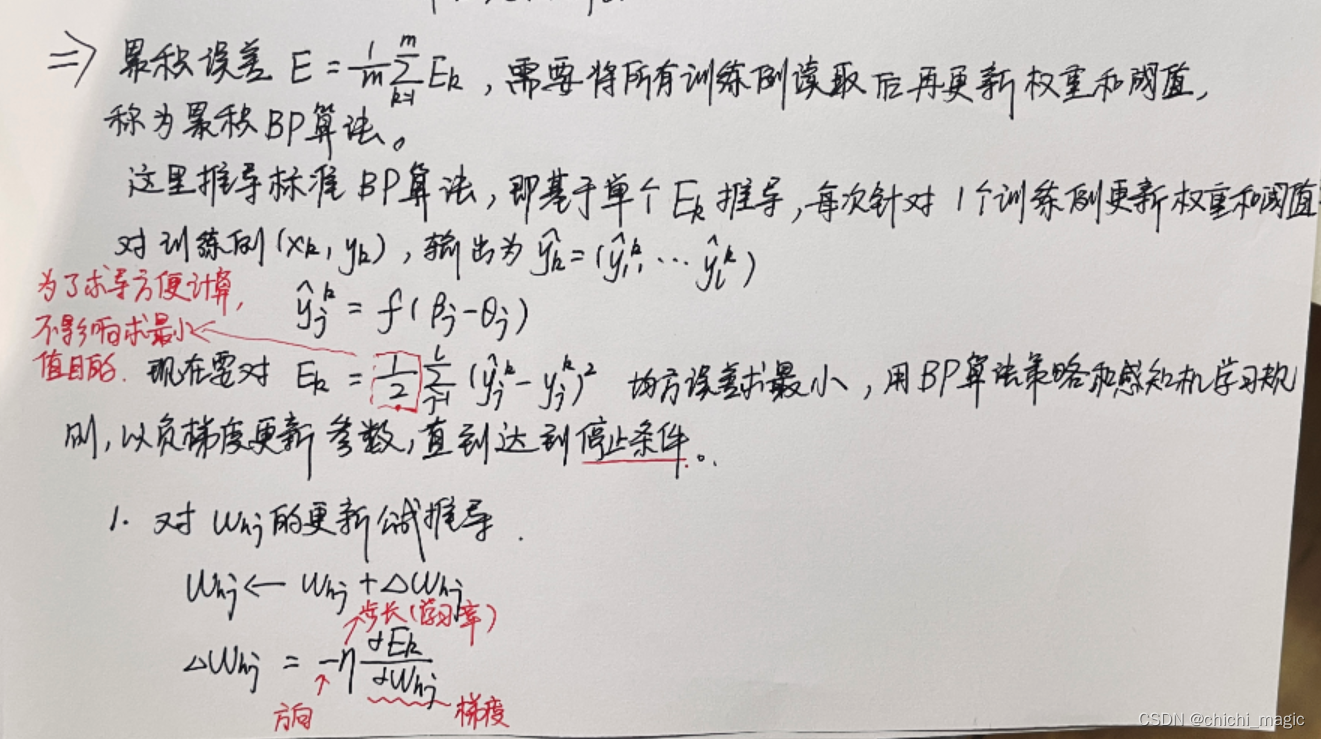 ⇒ 累积误差 E = 1/m ∑_{k=1}^{m} E_k ,需要将所有训练例读取后再更新权重和阈值,
称为累积BP算法。
这里推导标准BP算法,即基于单个 E_k 推导,每次针对1个训练例更新权重和阈值
对训练例(x_k, y_k),输出为 ŷ_k = (ŷ_1^k, ⋯ ŷ_l^k)
为了求导方便计算,
ŷ_j^k = f(β_j - θ_j)
不影响求最小
值目的.
现在要对 E_k = 1/2 ∑_{j=1}^{l} (ŷ_j^k - y_j^k)² 均方误差求最小,用BP算法策略和感知机学习规
则,以负梯度更新参数,直到达到停止条件。
1. 对 w_{hj} 的更新公式推导.
w_{hj} ← w_{hj} + △w_{hj}
步长(学习率)
△w_{hj} = -η ∂E_k/∂w_{hj}
方向 梯度
CSDN @chichi_magic